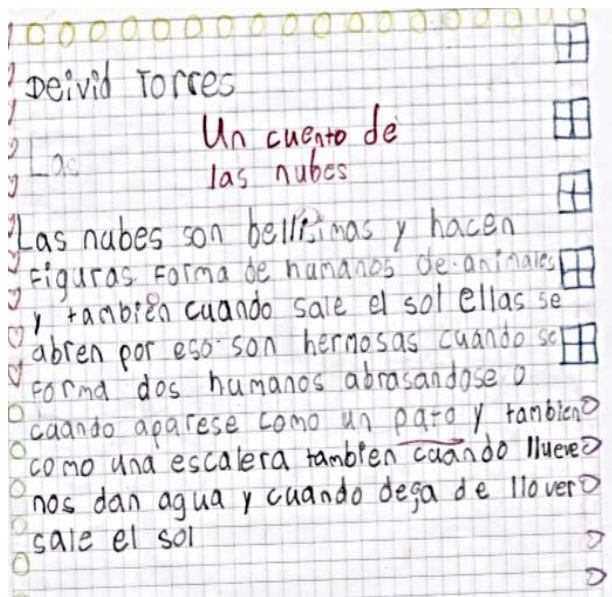 Deivid Torres
Un cuento de
Las
las nubes
Las nubes son bellisimas y hacen
figuras forma de humanos de animales
y tambien cuando sale el sol ellas se
abren por eso son hermosas cuando se
forma dos humanos abrasandose o
cuando aparese como un pato y tambien
como una escalera tambien cuando llueve
nos dan agua y cuando deja de llover
sale el sol